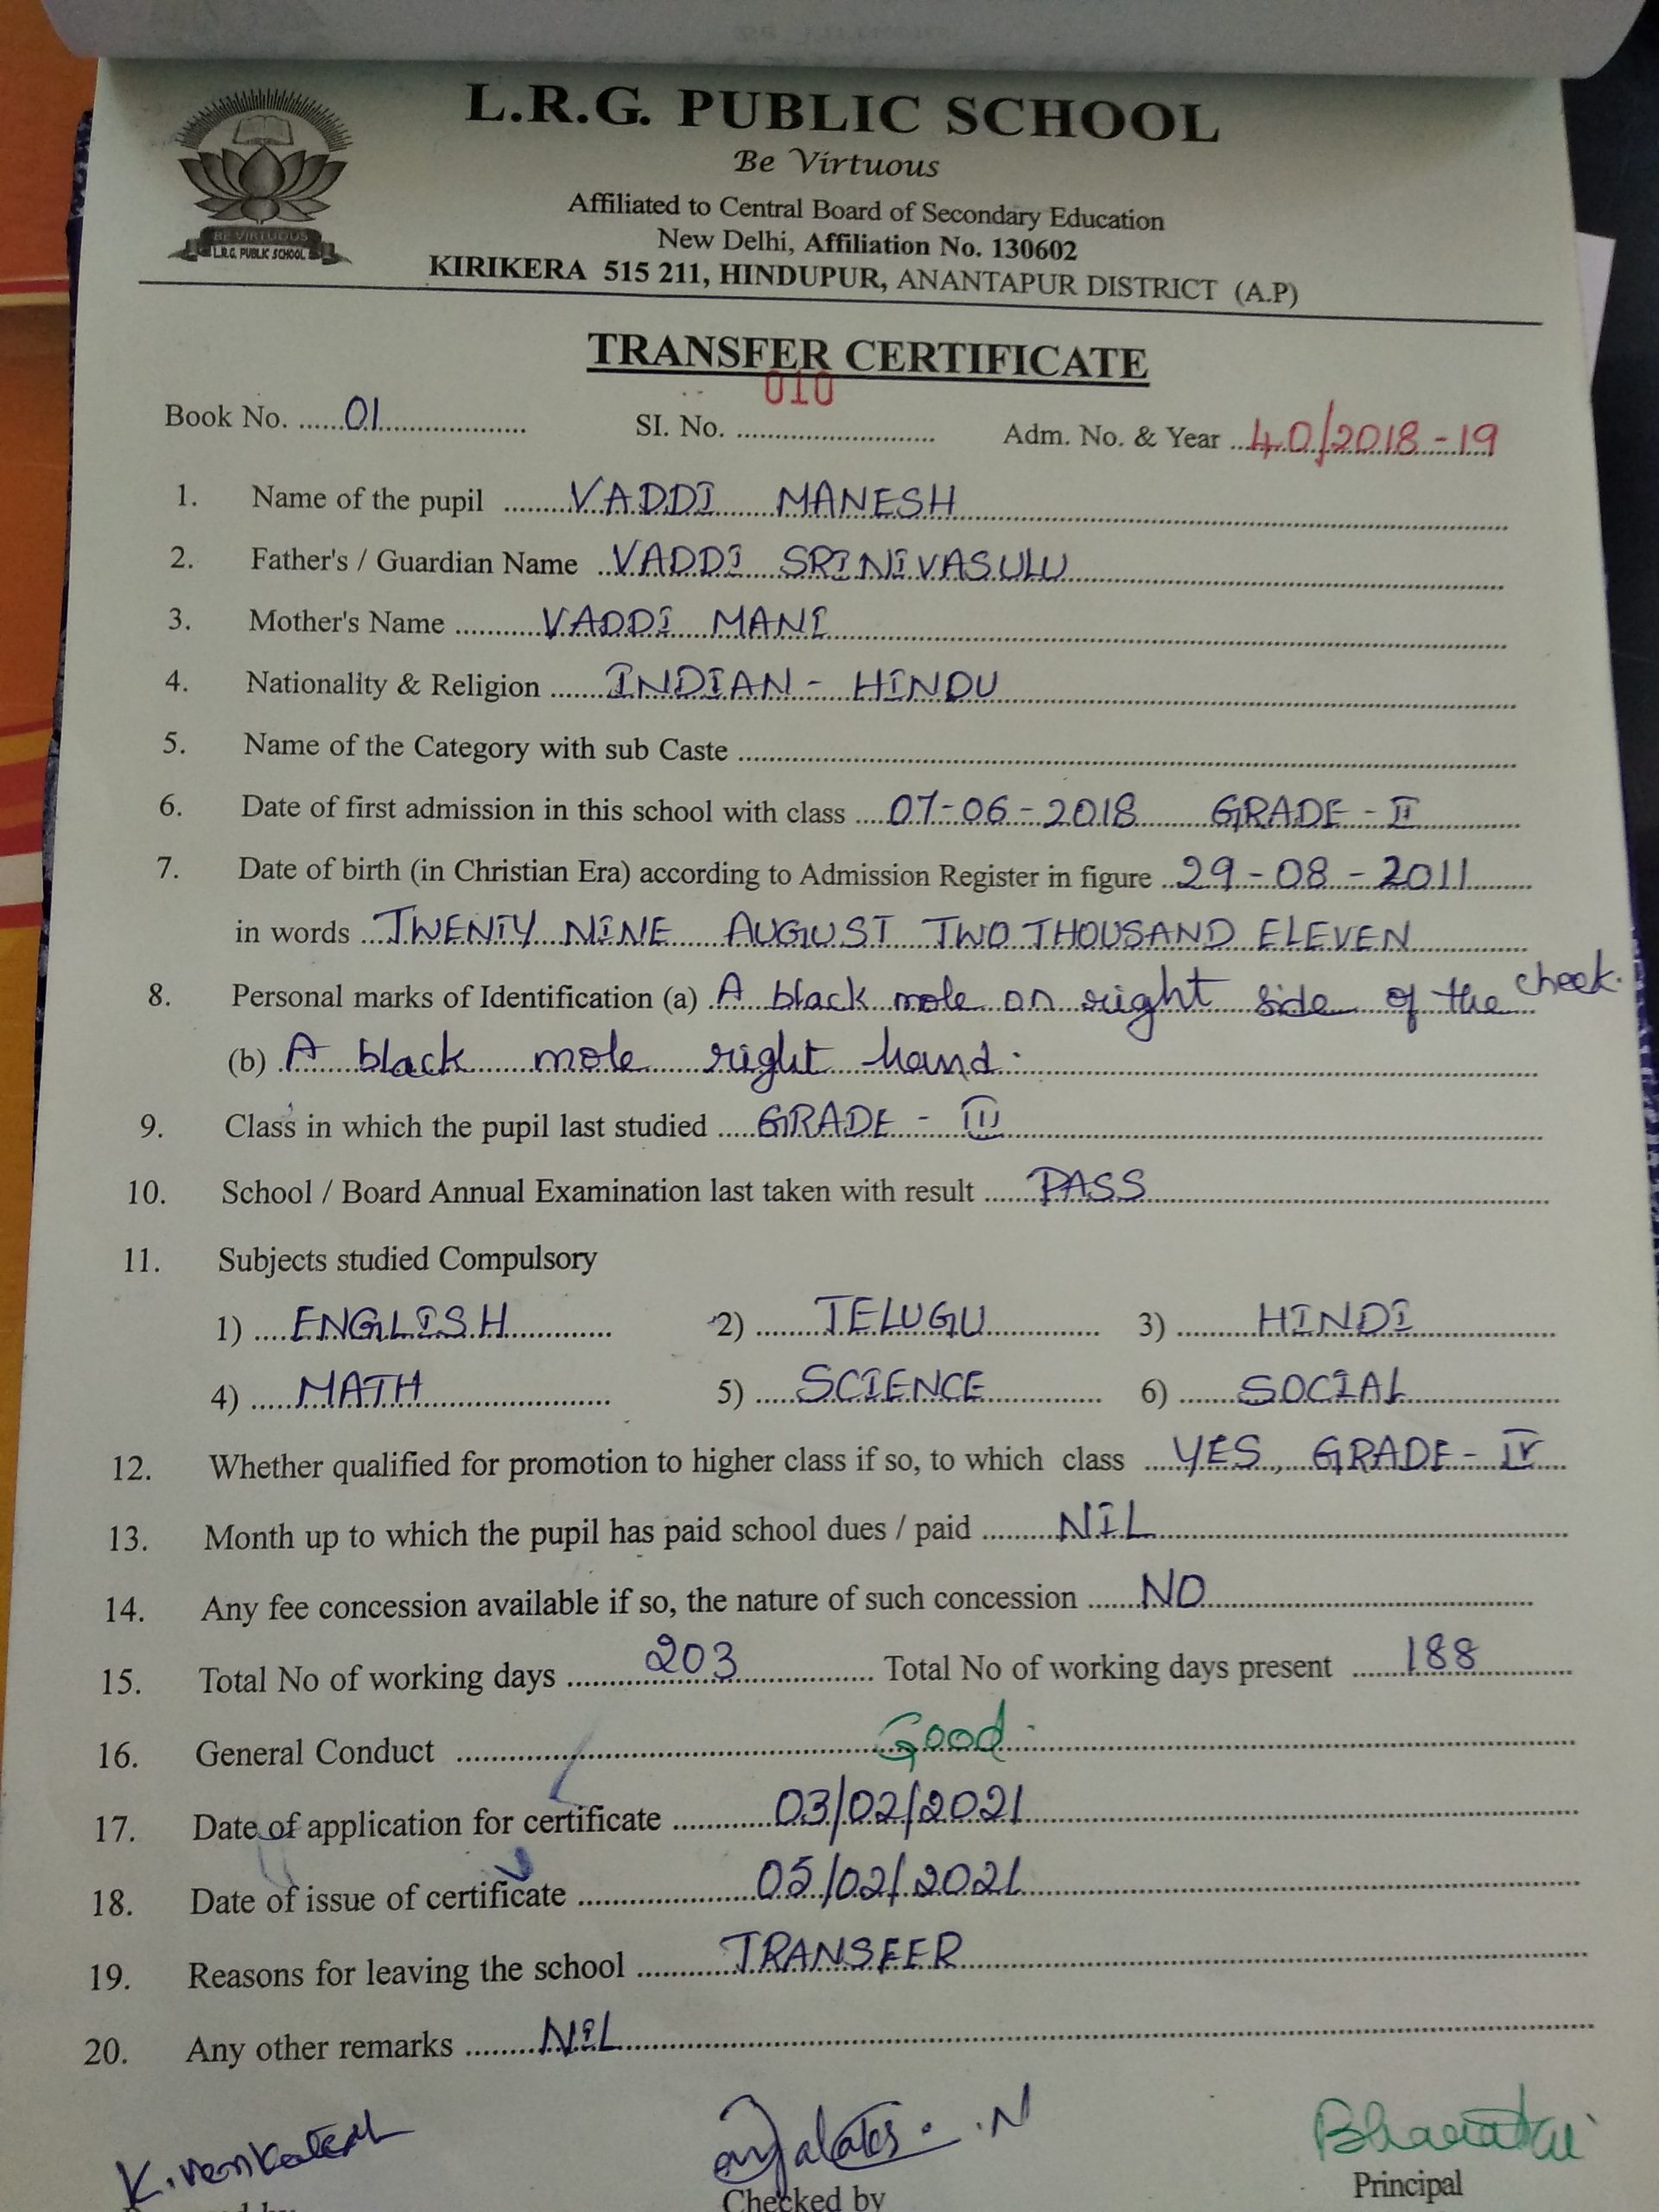 L.R.G. PUBLIC SCHOOL
Be Virtuous
Affiliated to Central Board of Secondary Education
New Delhi, Affiliation No. 130602
KIRIKERA 515 211, HINDUPUR, ANANTAPUR DISTRICT (A.P)
BE VIRTUOUS
L.R.G. PUBLIC SCHOOL
TRANSFER CERTIFICATE
Book No. 01 SI. No. 010 Adm. No. & Year 40/2018-19
1. Name of the pupil VADDI MANESH
2. Father's / Guardian Name VADDI SRINIVASULU
3. Mother's Name VADDI MANI
4. Nationality & Religion INDIAN - HINDU
5. Name of the Category with sub Caste
6. Date of first admission in this school with class 07-06-2018 GRADE - II
7. Date of birth (in Christian Era) according to Admission Register in figure 29-08-2011
in words TWENTY NINE AUGUST TWO THOUSAND ELEVEN
8. Personal marks of Identification (a) A black mole on right side of the cheek.
(b) A black mole right hand.
9. Class in which the pupil last studied GRADE - III
10. School / Board Annual Examination last taken with result PASS
11. Subjects studied Compulsory
1) ENGLISH 2) TELUGU 3) HINDI
4) MATH 5) SCIENCE 6) SOCIAL
12. Whether qualified for promotion to higher class if so, to which class YES, GRADE - IV
13. Month up to which the pupil has paid school dues / paid NIL
14. Any fee concession available if so, the nature of such concession NO
15. Total No of working days 203 Total No of working days present 188
16. General Conduct Good.
17. Date of application for certificate 03/02/2021
18. Date of issue of certificate 05/02/2021
19. Reasons for leaving the school TRANSFER
20. Any other remarks NIL
K. Venkatesh
Checked by
Principal